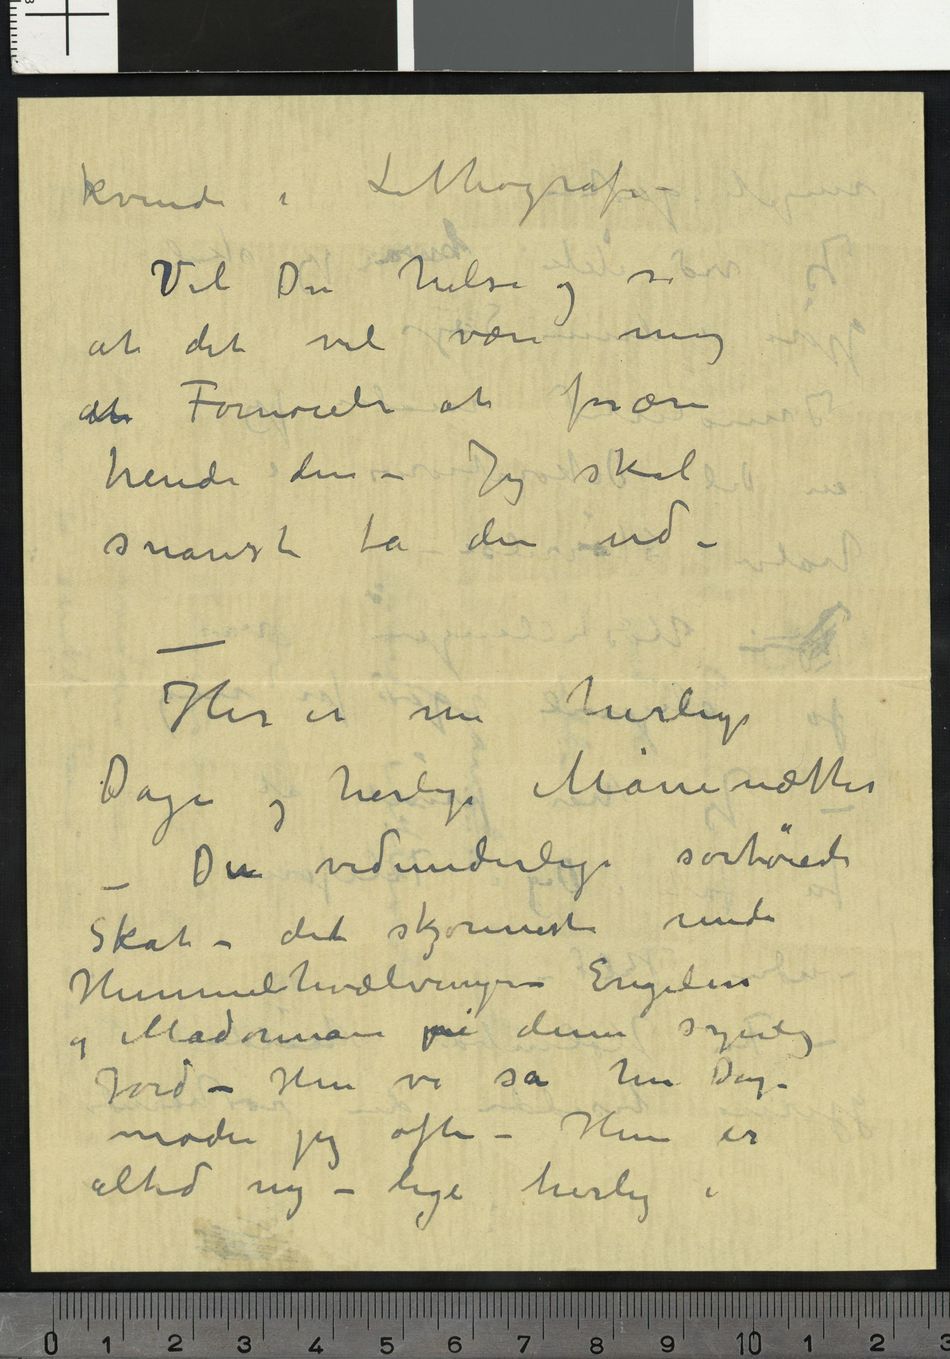 kvinde i Lithografi –
Vil Du hilse og si
at det vil være mig
en Fornøielse at forære
hende den – Jeg skal
snarest ta den ud –
—
Her er nu herlige
Dage og herlige Månenætter
– Den vidunderlige sortøiede
Skat – det skjønneste under
Himmelhvælvingen – Engelen
og Madonnaen på denne syndig
Jord – Hun vi så hin Dag –
møder jeg ofte – Hun er
altid ny – lige herlig i
0 1 2 3 4 5 6 7 8 9 10 1 2 3